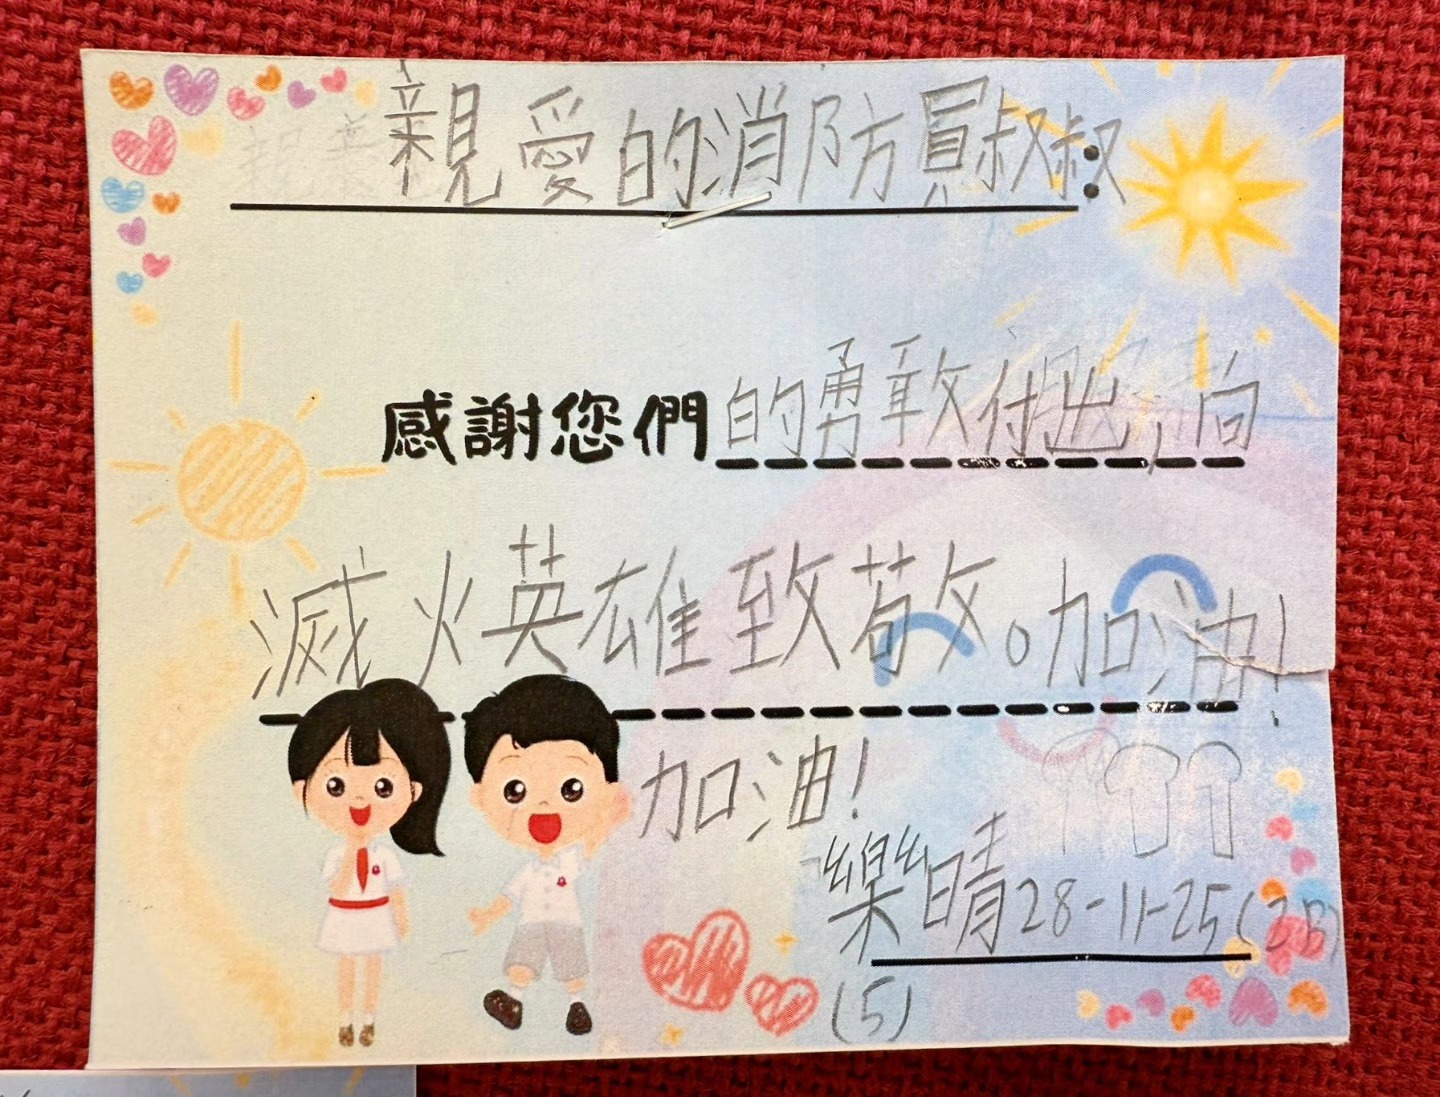 親愛的消防員叔叔：
感謝您們的勇敢付出，向
滅火英雄致敬。加油！
加油！
樂晴28-11-25(2B)
(5)